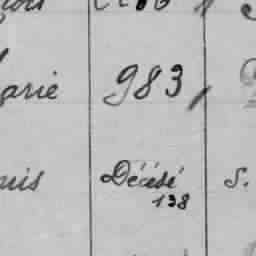 arie 983,
uis Décédé S.
138